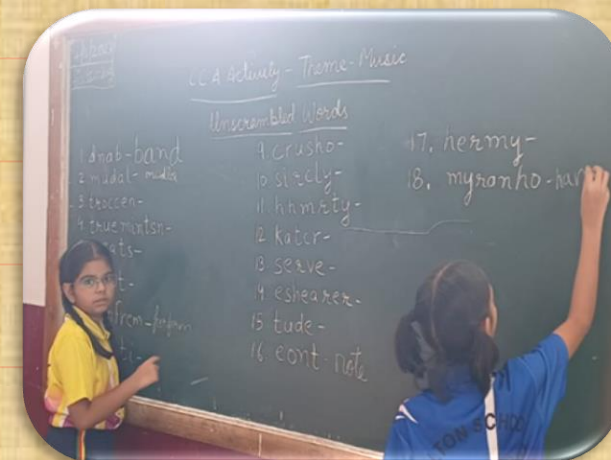 CCA Activity - Theme - Music
Unscrambled Words
1. dnab - band
2. mudal -
3. troccen -
4. true mintsn -
ats -
t -
frem - perform
ti -
9. crusho -
10. slrcly -
11. hhmrty -
12. katcr -
13. serve -
14. eshearer -
15. tude -
16. eont - note
17. hermy -
18. myranho - har
TON SCHOOL